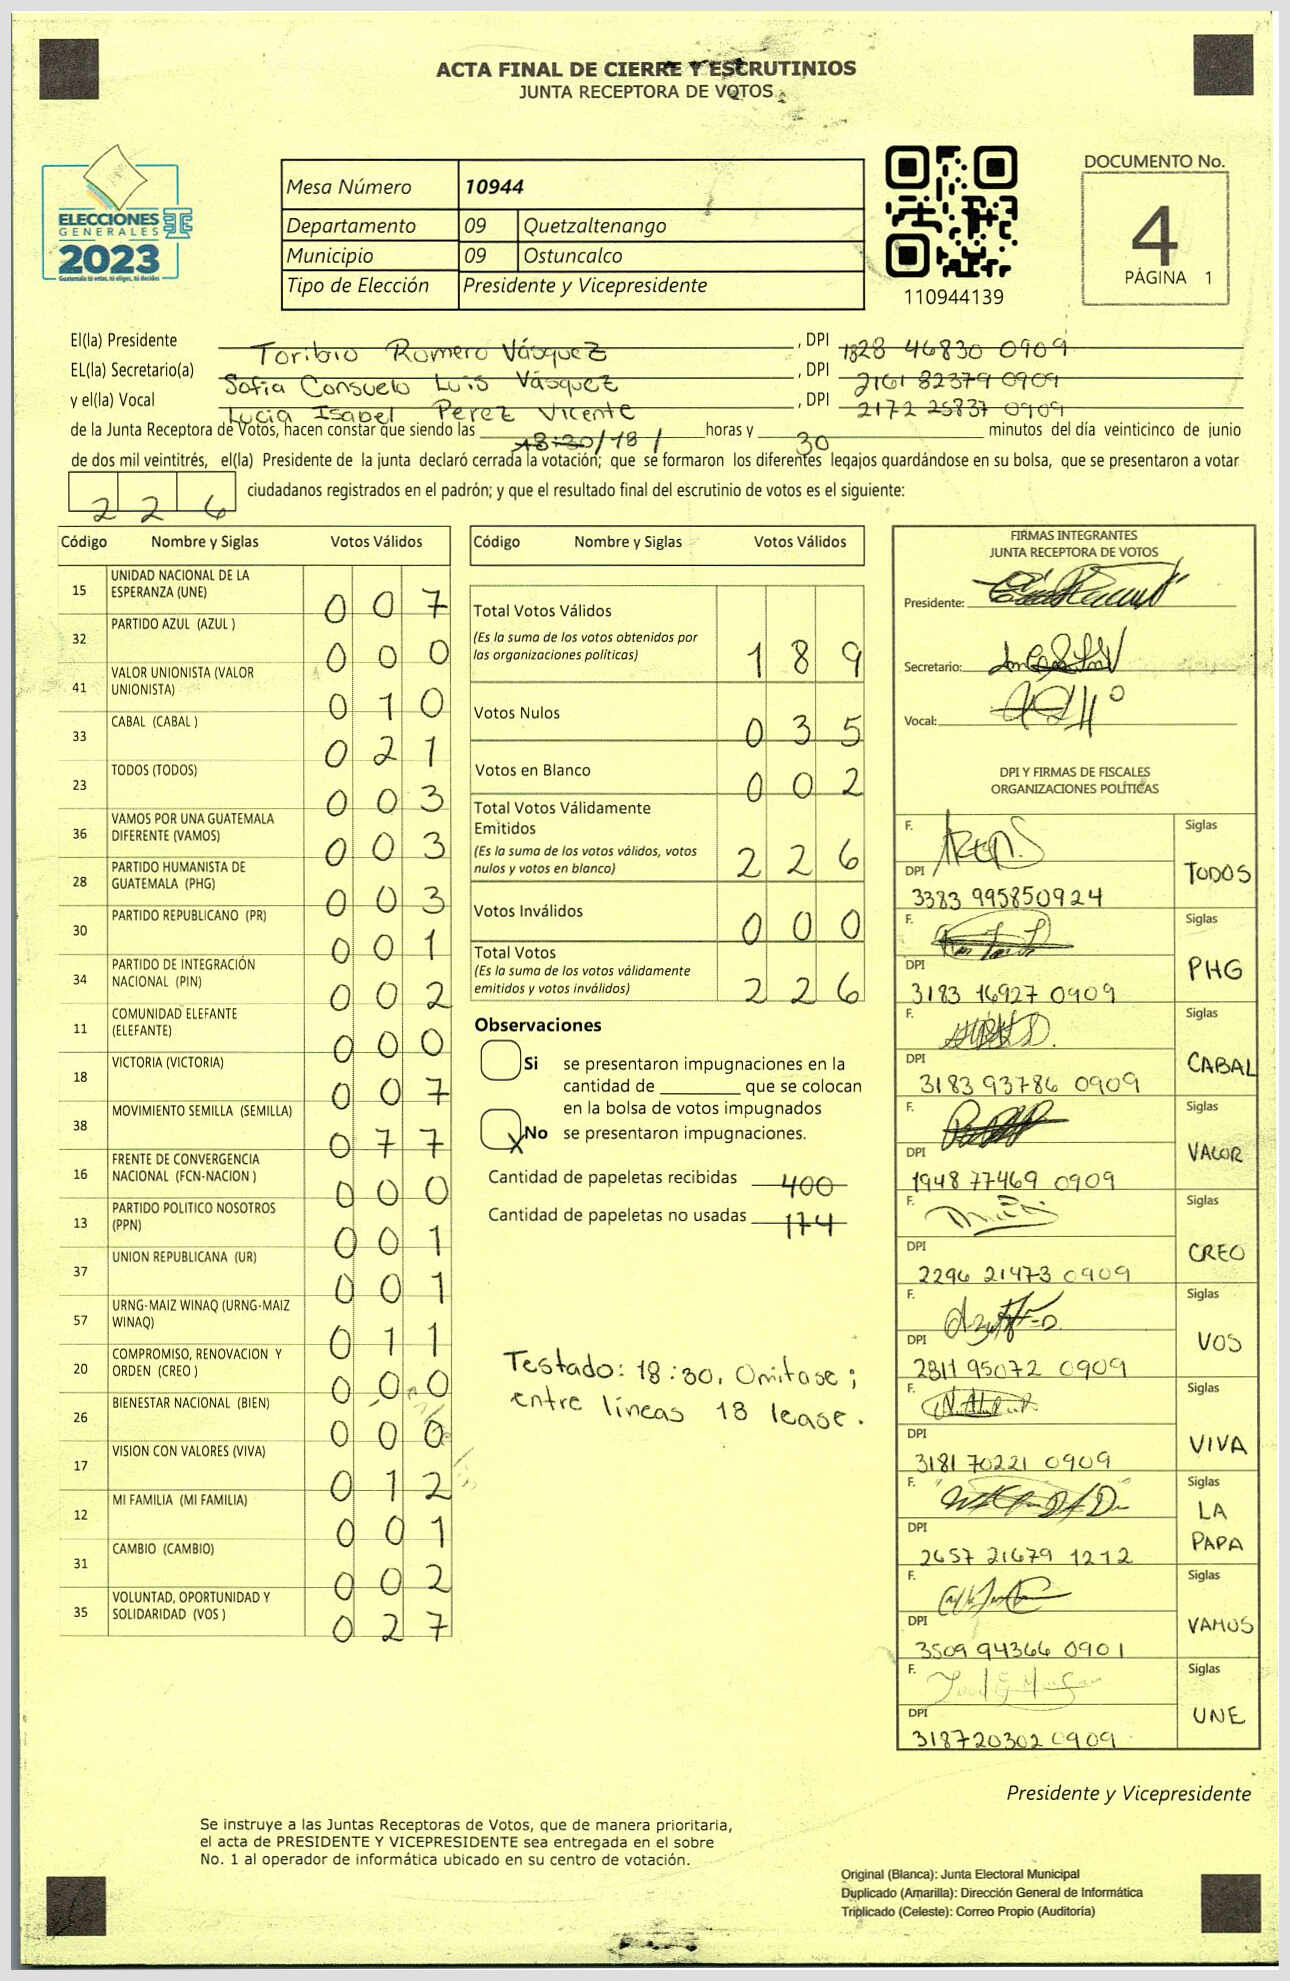 ACTA FINAL DE CIERRE Y ESCRUTINIOS
JUNTA RECEPTORA DE VOTOS
ELECCIONES
GENERALES
2023
Mesa Número 10944
Departamento 09 Quetzaltenango
Municipio 09 Ostuncalco
Tipo de Elección Presidente y Vicepresidente
110944139
DOCUMENTO No.
4
PÁGINA 1
El(la) Presidente Toribio Romero Vásquez, DPI 1828 46830 0909
EL(la) Secretario(a) Sofia Consuelo Luis Vásquez, DPI 2161 82379 0909
y el(la) Vocal Lucia Isabel Perez Vicente, DPI 2172 25837 0909
de la Junta Receptora de Votos, hacen constar que siendo las 18:30/18/ horas y 30 minutos del día veinticinco de junio
de dos mil veintitrés, el(la) Presidente de la junta declaró cerrada la votación; que se formaron los diferentes legajos quardándose en su bolsa, que se presentaron a votar
226 ciudadanos registrados en el padrón; y que el resultado final del escrutinio de votos es el siguiente:
Código Nombre y Siglas Votos Válidos
15 UNIDAD NACIONAL DE LA ESPERANZA (UNE) 007
32 PARTIDO AZUL (AZUL ) 000
41 VALOR UNIONISTA (VALOR UNIONISTA) 010
33 CABAL (CABAL ) 021
23 TODOS (TODOS) 003
36 VAMOS POR UNA GUATEMALA DIFERENTE (VAMOS) 003
28 PARTIDO HUMANISTA DE GUATEMALA (PHG) 003
30 PARTIDO REPUBLICANO (PR) 001
34 PARTIDO DE INTEGRACIÓN NACIONAL (PIN) 002
11 COMUNIDAD ELEFANTE (ELEFANTE) 000
18 VICTORIA (VICTORIA) 007
38 MOVIMIENTO SEMILLA (SEMILLA) 077
16 FRENTE DE CONVERGENCIA NACIONAL (FCN-NACION ) 000
13 PARTIDO POLITICO NOSOTROS (PPN) 001
37 UNION REPUBLICANA (UR) 001
57 URNG-MAIZ WINAQ (URNG-MAIZ WINAQ) 011
20 COMPROMISO, RENOVACION Y ORDEN (CREO ) 000
26 BIENESTAR NACIONAL (BIEN) 000
17 VISION CON VALORES (VIVA) 012
12 MI FAMILIA (MI FAMILIA) 001
31 CAMBIO (CAMBIO) 002
35 VOLUNTAD, OPORTUNIDAD Y SOLIDARIDAD (VOS ) 027
Código Nombre y Siglas Votos Válidos
Total Votos Válidos 189
(Es la suma de los votos obtenidos por
las organizaciones políticas)
Votos Nulos 035
Votos en Blanco 002
Total Votos Válidamente
Emitidos 226
(Es la suma de los votos válidos, votos
nulos y votos en blanco)
Votos Inválidos 000
Total Votos 226
(Es la suma de los votos válidamente
emitidos y votos inválidos)
Observaciones
Si se presentaron impugnaciones en la
cantidad de ________ que se colocan
en la bolsa de votos impugnados
X No se presentaron impugnaciones.
Cantidad de papeletas recibidas 400
Cantidad de papeletas no usadas 174
Testado: 18:30. Omitase;
entre líneas 18 lease.
FIRMAS INTEGRANTES
JUNTA RECEPTORA DE VOTOS
Presidente:
Secretario:
Vocal:
DPI Y FIRMAS DE FISCALES
ORGANIZACIONES POLÍTICAS
F. Siglas
DPI 3383 995850924 TODOS
F. Siglas
DPI 3183 16927 0909 PHG
F. Siglas
DPI 3183 93786 0909 CABAL
F. Siglas
DPI 1948 77469 0909 VALOR
F. Siglas
DPI 2296 21473 0909 CREO
F. Siglas
DPI 2811 95072 0909 VOS
F. Siglas
DPI 3181 70221 0909 VIVA
F. Siglas
DPI 2657 21679 1212 LA PAPA
F. Siglas
DPI 3509 94366 0901 VAMOS
F. Siglas
DPI 318720302 0909 UNE
Presidente y Vicepresidente
Se instruye a las Juntas Receptoras de Votos, que de manera prioritaria,
el acta de PRESIDENTE Y VICEPRESIDENTE sea entregada en el sobre
No. 1 al operador de informática ubicado en su centro de votación.
Original (Blanca): Junta Electoral Municipal
Duplicado (Amarilla): Dirección General de Informática
Triplicado (Celeste): Correo Propio (Auditoría)